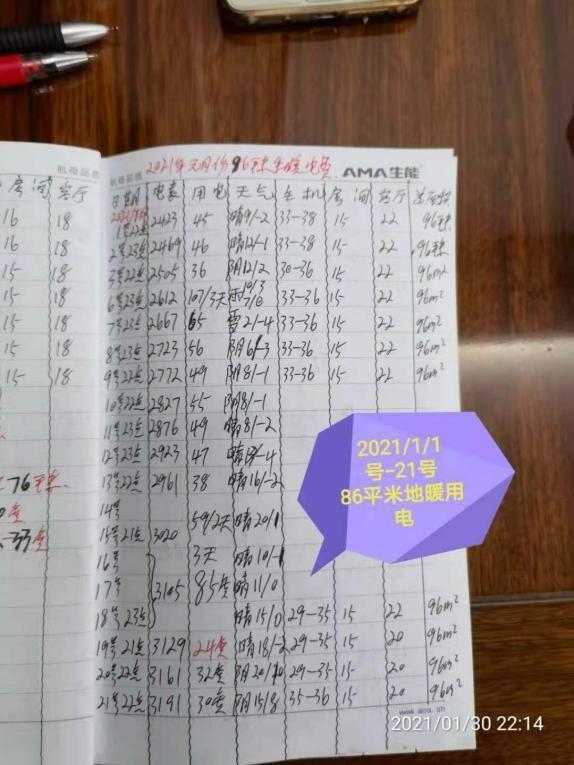 房间 客厅
16 18
16 18
15 18
15 18
15 18
15 18
15 18
76
航母品质
2021年元月份96 电费
AMA生能
日期 电表 用电 天气 主机 房间 客厅
2021/1月
1号22点 2423 45 晴9/-2 33-38 15 22
2号23点 2469 46 晴12/-1 33-38 15 22
3号22点 2505 36 阴12/2 30-36 15 22 96m²
6号23点 2612 107/3天 雨 33-36 15 22 96m²
7号23点 2667 65 雪2/-4 33-36 15 22 96m²
8号23点 2723 56 阴6/-3 33-36 15 22 96m²
9号22点 2772 49 阴8/-1 33-36 15 22 96m²
10号22点 2827 55 阴8/-1
11号23点 2876 49 晴8/-2
12号23点 2923 47
13号22点 2961 38 晴16/-2
14号
15号21点 3020 59/2天 晴20/1
16号 3天 晴10/-1
17号 3105 85度 晴11/0
18号23点 晴15/0 29-35 15 22 96m²
19号21点 3129 24度 晴18/-2 29-35 15 20 96m²
20号22点 3161 32度 阴20/10 29-35 15 20 96m²
21号22点 3191 30度 阴15/8 35-36 15 20 96m²
2021/1/1
号-21号
86平米地暖用
电
www.ama.sh
2021/01/30 22:14